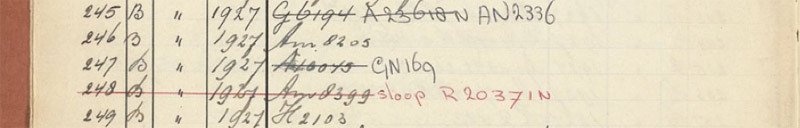 245 B " 1927 G6194 K23618N AN2336
246 B " 1927 Am 8205
247 B " 1927 A16045 GN169
248 B " 1927 Am 8399 sloop R20371N
249 B " 1927 H2103